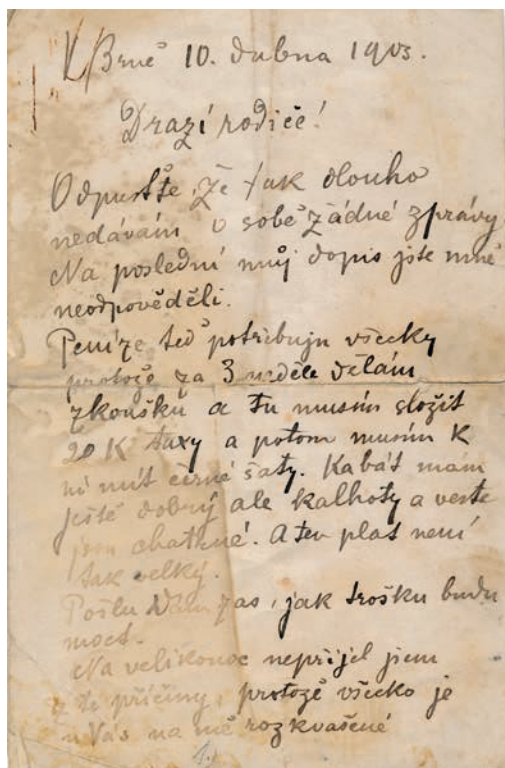 V Brně 10. dubna 1903.
Drazí rodiče!
Odpusťte, že tak dlouho
nedávám o sobě žádné zprávy.
Na poslední můj dopis jste mně
neodpověděli.
Peníze teď potřebuju všecky
protože za 3 neděle dělám
zkoušku a tu musím složit
20 K taxy a potom musím k
ní mít černé šaty. Kabát mám
ještě dobrý ale kalhoty a veste
jsou chatrné. A ten plat není
tak velký.
Pošlu Vám zas, jak trošku budu
moct.
Na velikonoc nepřijel jsem
z té příčiny, protože všecko je
u Vás na mě rozkvašené
1.)